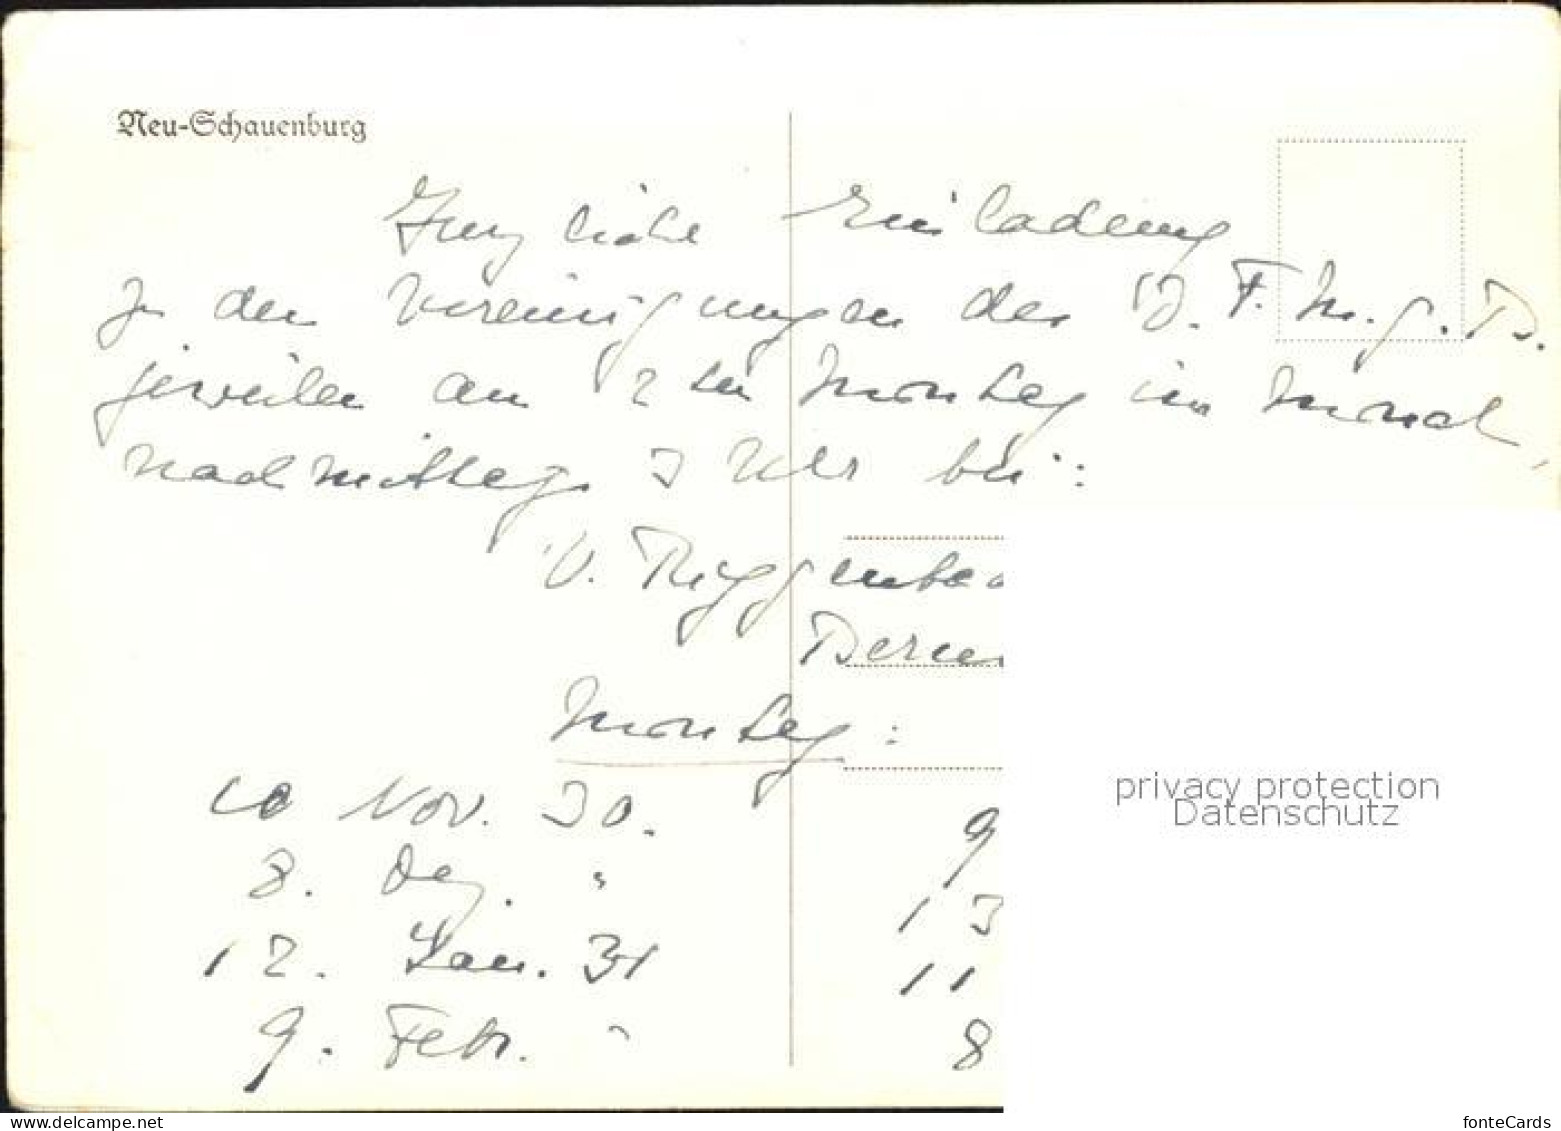 Neu-Schauenburg
Herzliche Einladung
zu den Vereinigungen des V. F. M. g. B.
jeweilen am 2ten Montag im Monat,
nachmittags 3 Uhr bei:
V. Riggenbac
Montag:
10 Nov. 30.
8. Dez. "
12. Jan. 31
9. Febr. "
9
13
11
8
privacy protection
Datenschutz
www.delcampe.net
fonteCards